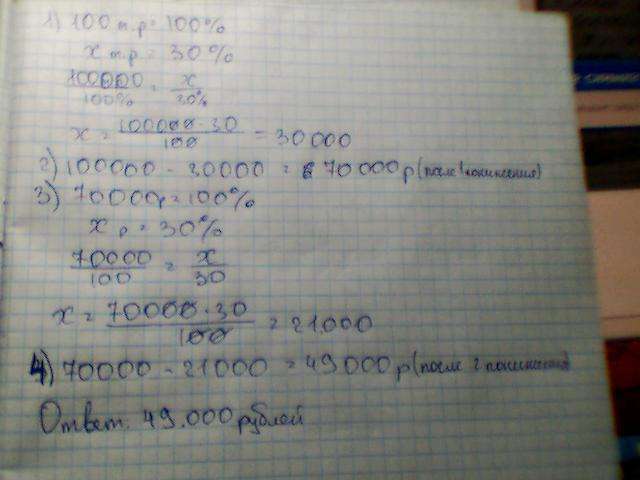 1) 100 т.р = 100%
x т.р = 30%
100000/100% = x/30%
x = 100000·30/100 = 30000
2) 100000 - 30000 = 70000 р (после 1 понижения)
3) 70000р = 100%
x р = 30%
70000/100 = x/30
x = 70000·30/100 = 21000
4) 70000 - 21000 = 49000 р (после 2 понижения)
Ответ: 49.000 рублей